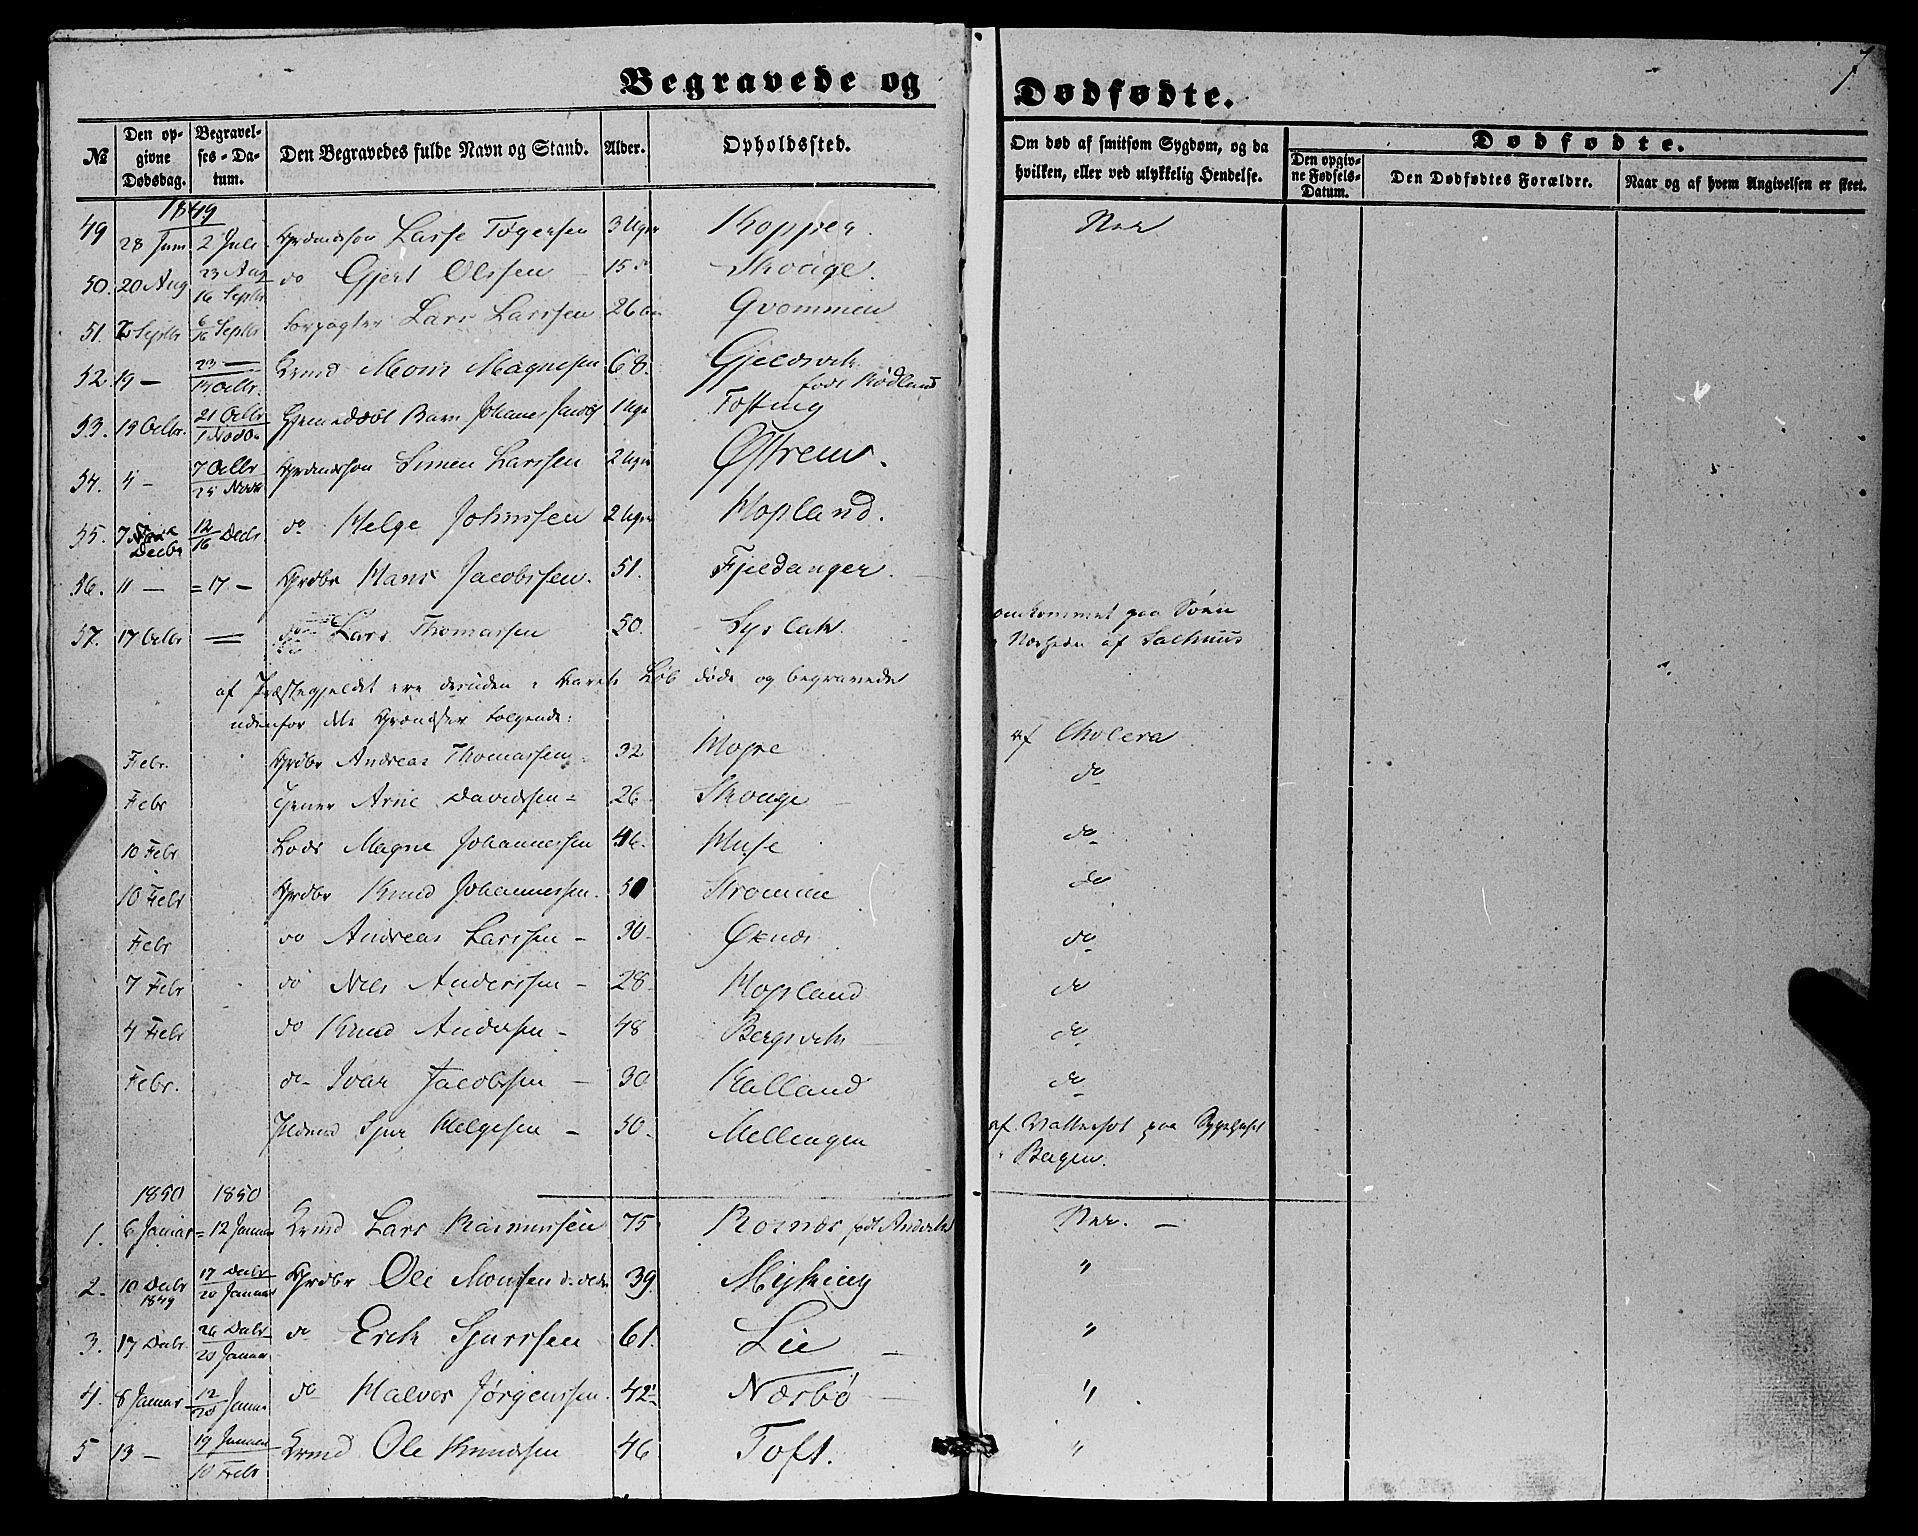 Begravede og Dødfødte.
7
№ Den opgivne Dødsdag. Begravelses-Datum. Den Begravedes fulde Navn og Stand. Alder. Opholdssted. Om død af smitsom Sygdom, og da hvilken, eller ved ulykkelig Hendelse. Dødfødte. Den opgivne Fødsels-Datum. Den Dødfødtes Forældre. Naar og af hvem Angivelsen er skeet.
1849
49 28 Juni 2 Juli Lasse Tøgersen 3 Uger Kopper. Nei
50. 20 Aug 23 Aug 16 Septbr do Gjert Olssen 15 do Skouge.
51. 2 Septbr 6 16 Septbr Forpagter Lars Larssen 26 Gvommen
52. 19 — 23 — 14 Octbr. Mons Magnesen 68. Gjeldsvik født Rødland
53. 13 Octbr. 21 Octbr 1 Barn Johannes 1 Uge Tofting
54. 4 — 7 Octbr 25 Novb Simen Larssen 2 Uger Østrem.
55. 7 Decbr 12 16 Decbr do Helge Johnssen 2 Uger Hopland.
56. 11 — = 17 — Grdbr Hans Jacobssen. 51. Fjeldanger.
57. 17 Octbr = Lars Thomassen 50. Syslak omkommet paa Søen i Nærheden af Salhuus
af Præstegjeldet ere desuden i Aarets Løb døde og begravede
udenfor dets Grændser følgende:
Febr. Grdbr Andreas Thomassen 32 Hope af Cholera
Febr Arne Davidssen - 26 - Skouge do
10 Febr Lods Magne Johannessen 46. Huse do
10 Febr Grdbr Knud Johannessen. 50 Stromme do
Febr do Andreas Larssen - 30 - Øknæs do
7 Febr do Nils Anderssen - 28. Hopland do
4 Febr do Knud Andersen - 48 Bergsvik do
Febr. do Ivar Jacobssen - 30 Halland do
Sjur Helgesen - 50. Mellingen af Vattersot paa Sygehuset i Bergen.
1850 1850
1. 6 Januar = 12 Januar Lars Rasmussen 75. Rosnæs født Nei. —
2. 10 Decbr 1849 17 Decbr 20 Januar Grdbr Ole Monssen 39. Myking "
3. 17 Decbr. 26 Decbr 20 Januar do Erik Sjurssen 61. Lie "
4. 8 Januar 12 20 Janua do Halvor Jørgenssen. 42 Næsbø "
5 13 — 19 Januar 10 Febr Ole Knudssen 46 Toft. "